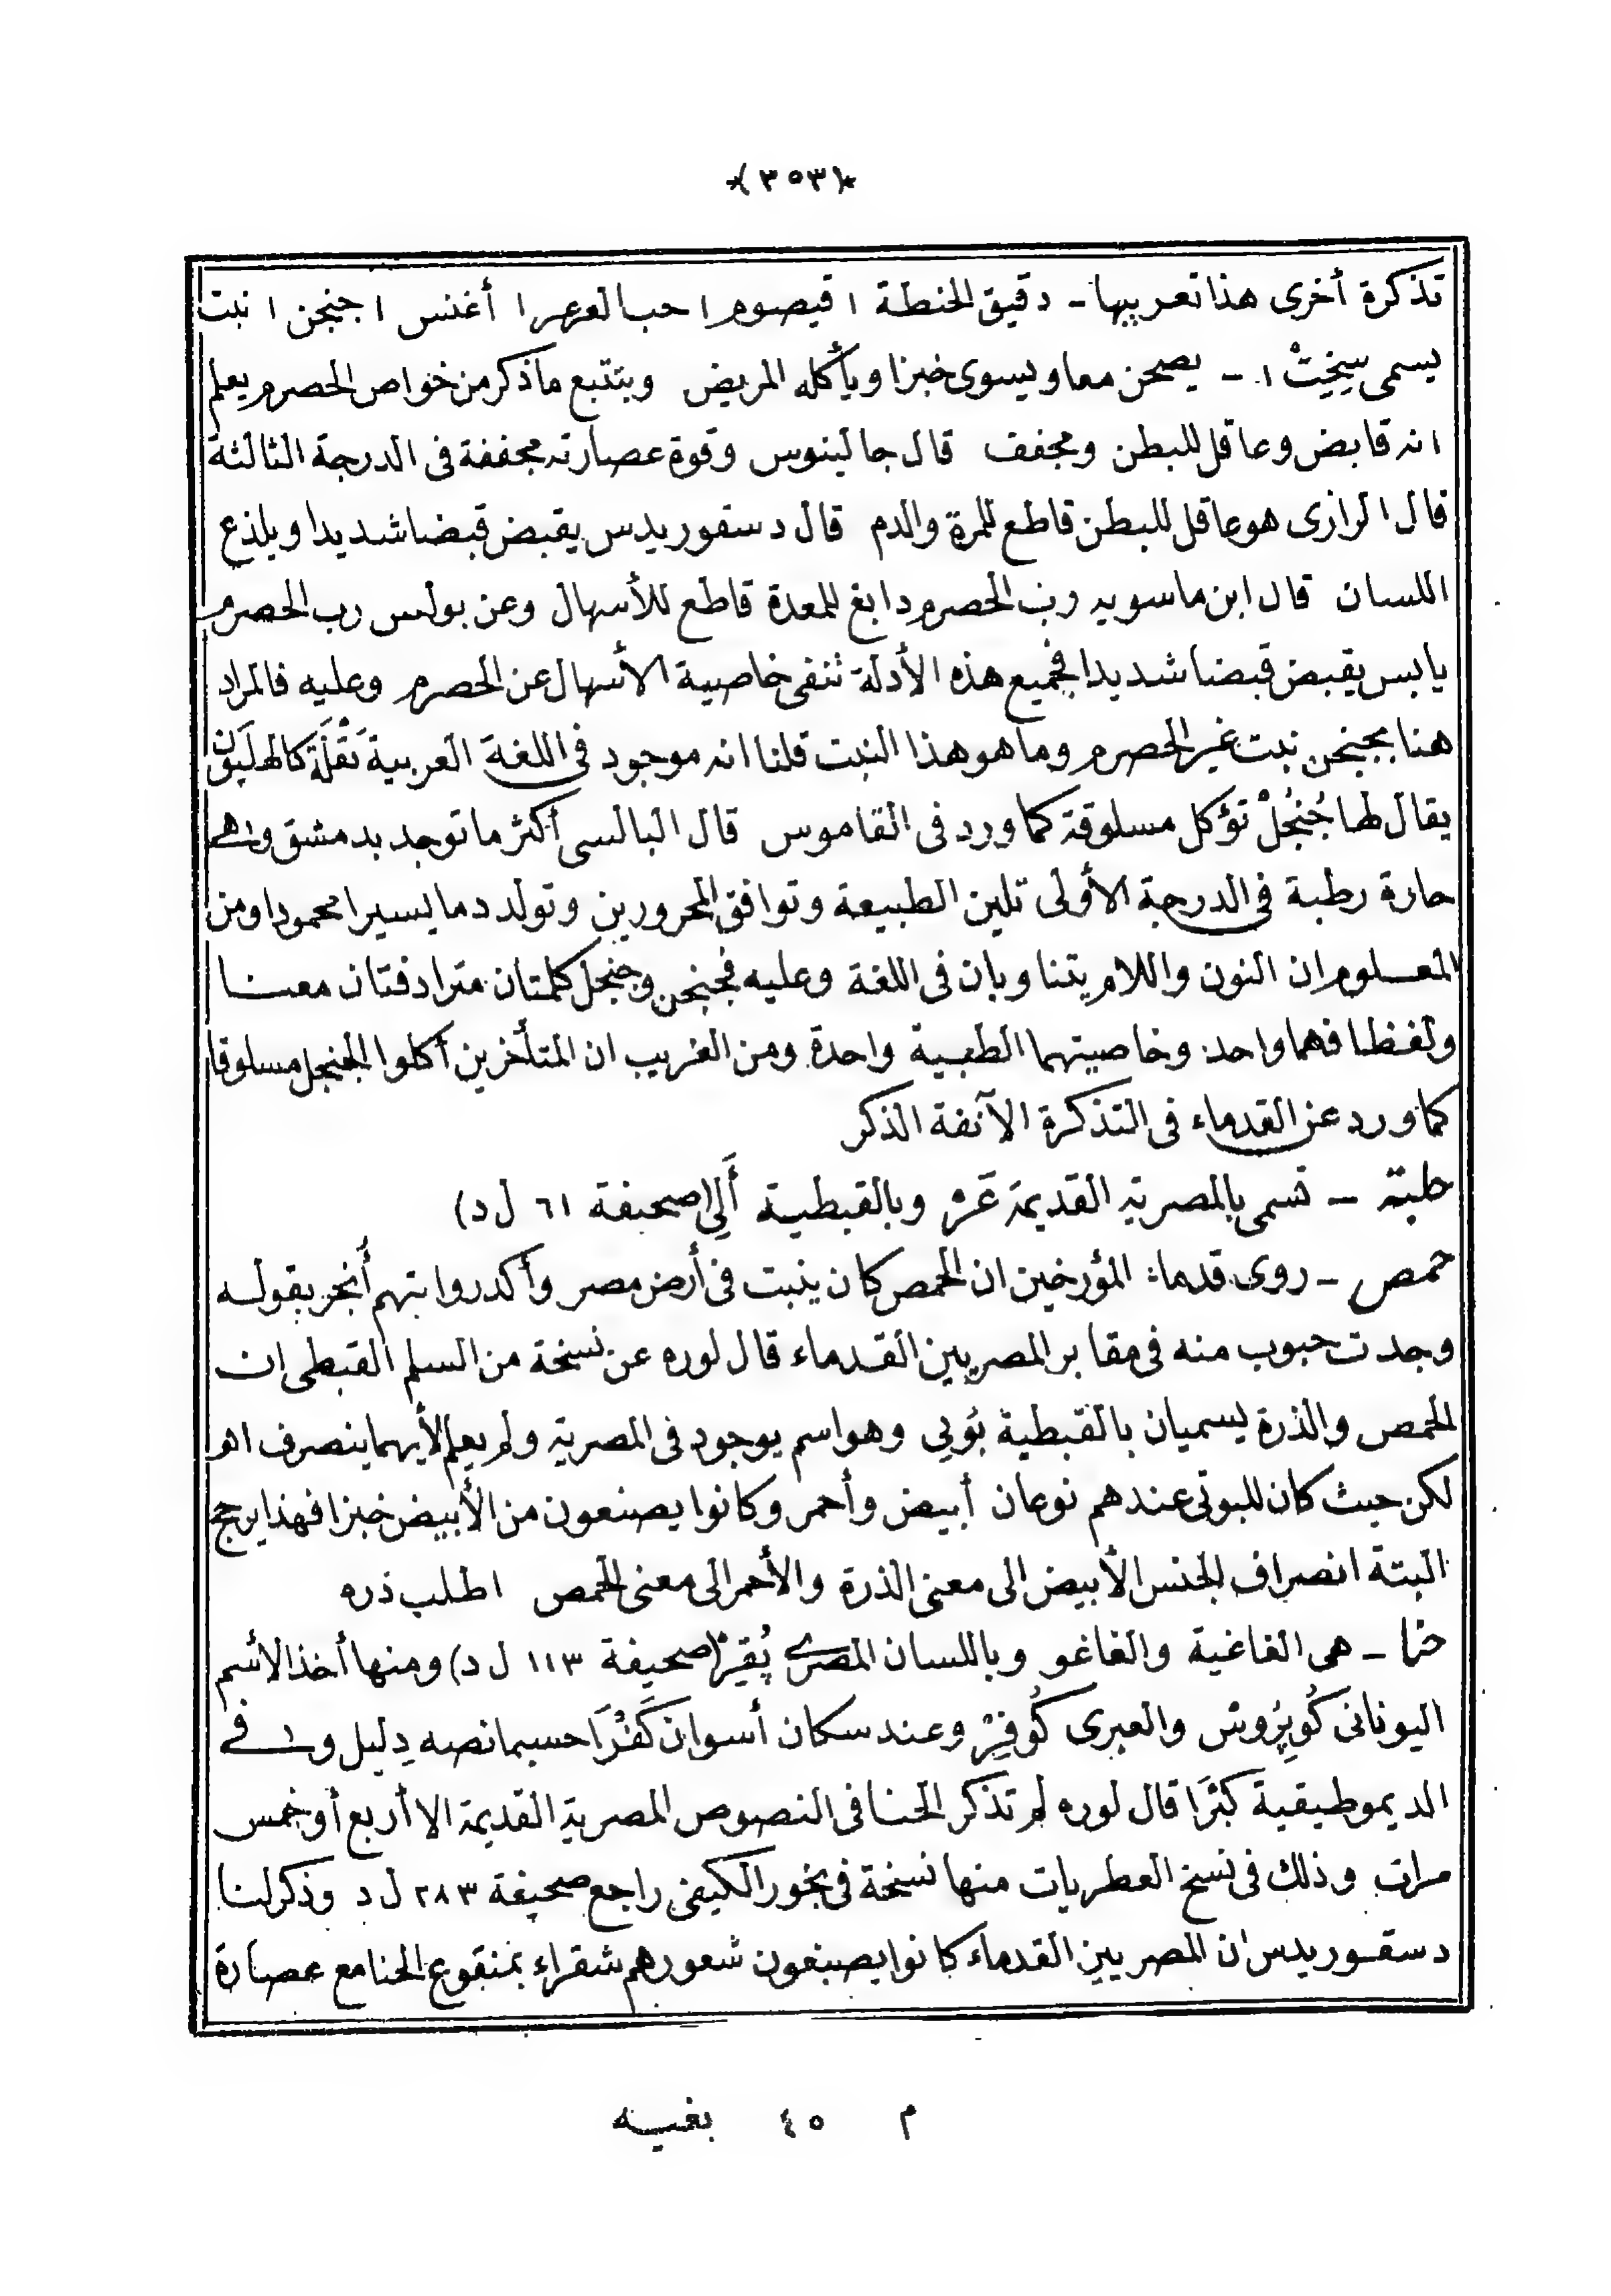 ﴿٣٥٣﴾
تذكرة أخرى هذا تعريبها - دقيق الحنطة ١ قيصوم ١ حب العرعر ١ أغنس ١ جنجن ١ نبت
يسمى سِخِتْ ١ - يصحن معا ويسوى خبزا ويأكله المريض وبتتبع ماذكر من خواص الحصرم يعلم
انه قابض وعاقل للبطن ومجفف قال جالينوس وقوة عصارته مجففة فى الدرجة الثالثة
قال الرازى هو عاقل للبطن قاطع للمرة والدم قال دسقوريدس يقبض قبضا شديدا ويلذع
اللسان قال ابن ماسويه رب الحصرم دابغ للمعدة قاطع للأسهال وعن بولس رب الحصرم
يابس يقبض قبضا شديدا فجميع هذه الأدلة تنفى خاصية الأسهال عن الحصرم وعليه فالمراد
هنا بجنجن نبت غير الحصرم وما هو هذا النبت قلنا انه موجود فى اللغة العربية بَقْلَة كالهليَون
يقال لها جُنجُلْ تؤكل مسلوقة كما ورد فى القاموس قال البالسى أكثر ما توجد بدمشق وهى
حارة رطبة فى الدرجة الأولى تلين الطبيعة وتوافق المحرورين وتولد دما يسيرا محمودا ومن
المعلوم ان النون واللام يتناوبان فى اللغة وعليه فجنجن وجنجل كلمتان مترادفتان معنا
ولفظا فهما واحد وخاصيتهما الطبية واحدة ومن الغريب ان المتأخرين أكلوا الجنجل مسلوقا
كما ورد عن القدماء فى التذكرة الآنفة الذكر
حلبة - تسمى بالمصرية القديمة عَرْ وبالقبطية أَلِى (صحيفة ٦١ ل د)
حمص - روى قدماء المؤرخين ان الحمص كان ينبت فى أرض مصر وأكد روايتهم أُنجر بقوله
وجدت حبوب منه فى مقابر المصريين القدماء قال لوره عن نسخة من السلم القبطى ان
الحمص والذرة يسميان بالقبطية بُوتِى وهو اسم يوجود فى المصرية ولم يعلم لأيهما ينصرف اهر
لكن حيث كان للبوتى عندهم نوعان أبيض وأحمر وكانوا يصنعون من الأبيض خبزا فهذا يرجح
البتة انصراف الجنس الأبيض الى معنى الذرة والأحمر الى معنى الحمص اطلب ذره
حنا - هى الفاغية والفاغو وباللسان المصرى پُقِرْ (صحيفة ١١٣ ل د) ومنها أخذ الأسم
اليونانى كُوپِرُوسْ والعبرى كُوفِرْ وعند سكان أسوان كَفْرَا حسبما نصه دِليل وفى
الديموطيقية كَثْرَا قال لوره لم تذكر الحنا فى النصوص المصرية القديمة الا أربع أو خمس
مرات وذلك فى نسخ العطريات منها نسخة فى بخور الكيفى راجع صحيفة ٢٨٣ ل د وذكر لنا
دسقوريدس ان المصريين القدماء كانوا يصبغون شعورهم شقراء بمنقوع الحنا مع عصارة
م ٤٥ بغيه